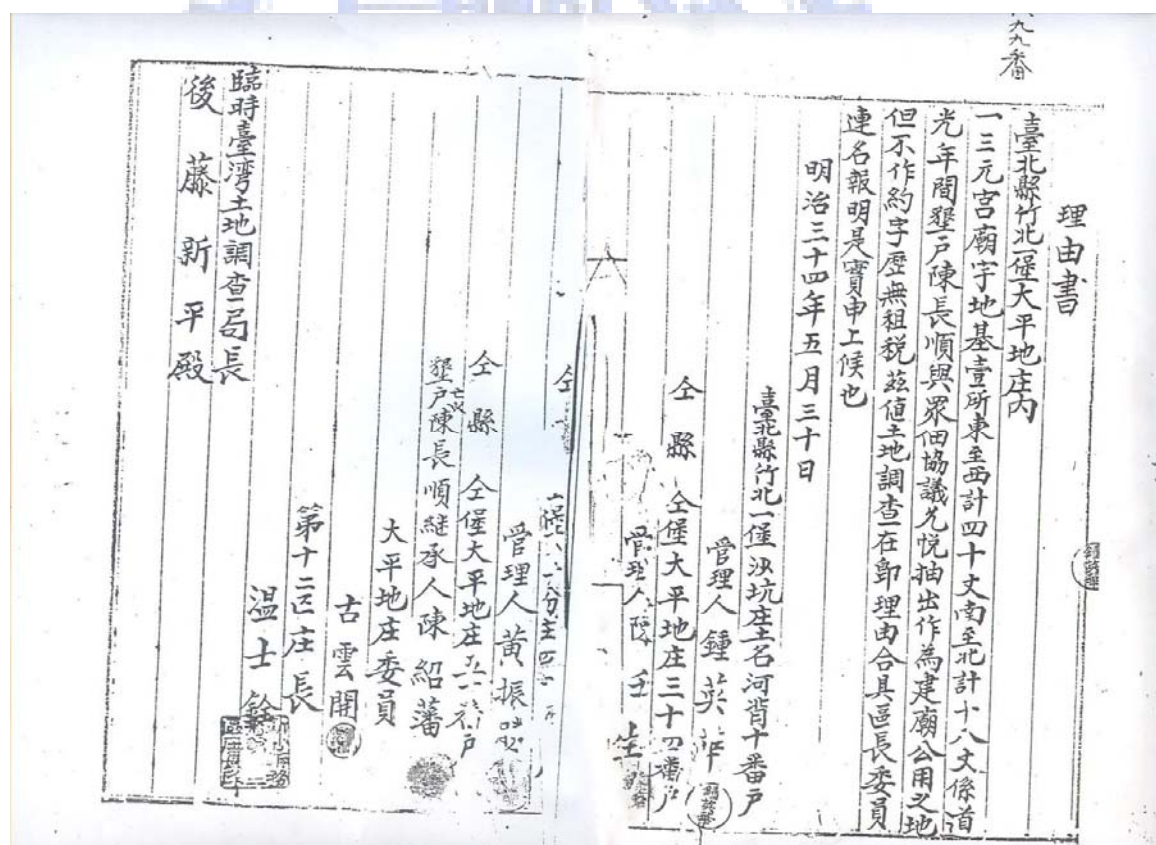 九九番
理由書
臺北縣竹北一堡大平地庄内
一三元宮廟宇地基壹所東至西計四十丈南至北計十八丈係道
光年間墾戶陳長順與眾佃協議允悦抽出作為建廟公用之地
但不作約字歷無租税茲值土地調查在即理由合具區長委員
連名報明是實申上候也
明治三十四年五月三十日
臺北縣竹北一堡沙坑庄土名河背十番戶
管理人 鍾英
仝縣 仝堡大平地庄三十四番戶
管理人 壬生
仝
管理人 黃振
仝縣 仝堡大平地庄 戶
墾戶亡故陳長順継承人陳紹藩
大平地庄委員
古雲開
第十二区庄長
温士
臨時臺湾土地調查局長
後藤新平殿